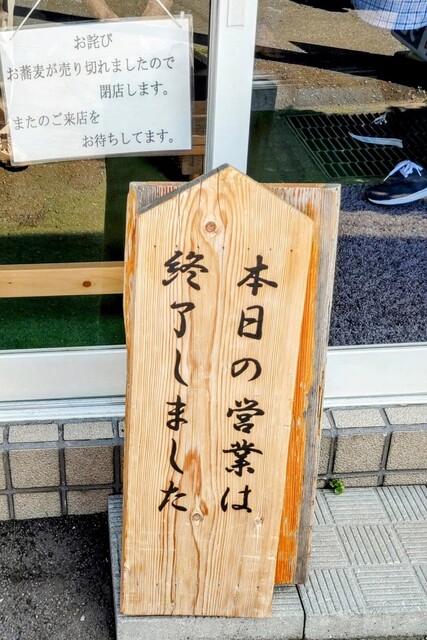 お詫び
お蕎麦が売り切れましたので
閉店します。
またのご来店を
お待ちしてます。
本日の営業は
終了しました